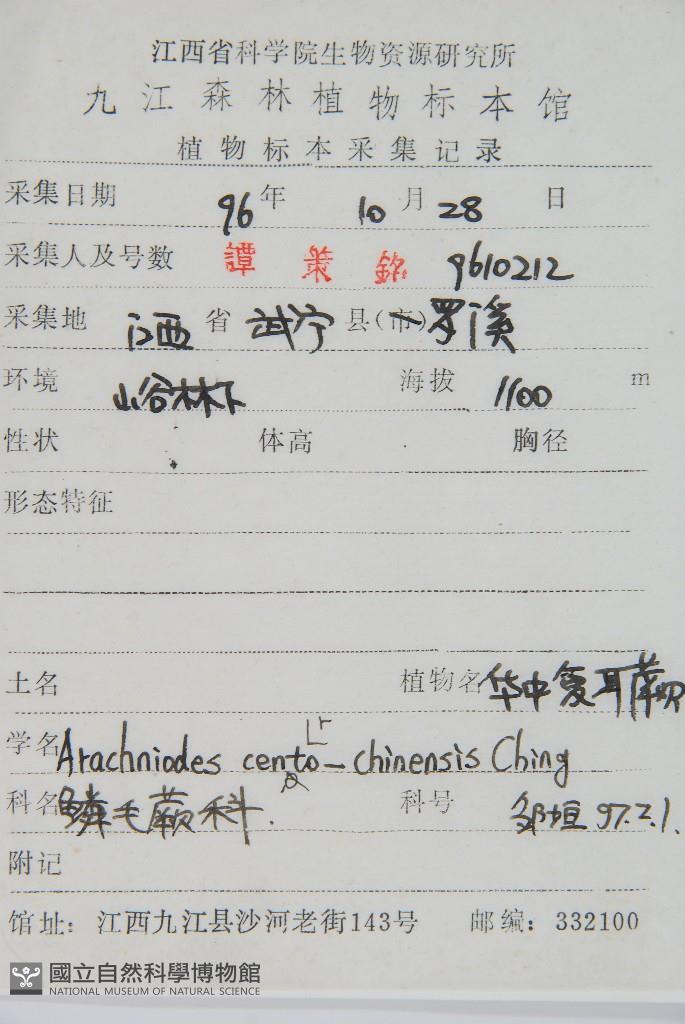 江西省科学院生物资源研究所
九江森林植物标本馆
植物标本采集记录
采集日期 96年 10月28 日
采集人及号数 譚策銘 9610212
采集地 江西省 武宁县(市)罗溪
环境 山谷林下 海拔 1100 m
性状 体高 胸径
形态特征
土名 植物名 华中复耳蕨
学名 Arachniodes centro-chinensis Ching
科名 鳞毛蕨科. 科号 邹垣 97.2.1.
附记
馆址: 江西九江县沙河老街143号 邮编: 332100
國立自然科學博物館
NATIONAL MUSEUM OF NATURAL SCIENCE